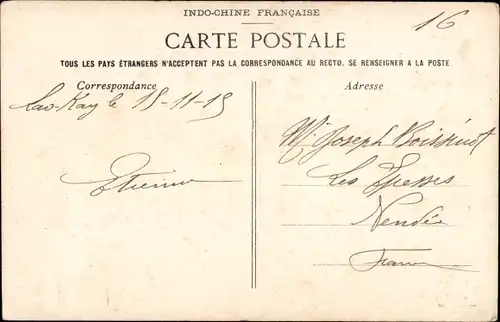 INDO-CHINE FRANÇAISE
16
CARTE POSTALE
TOUS LES PAYS ÉTRANGERS N'ACCEPTENT PAS LA CORRESPONDANCE AU RECTO. SE RENSEIGNER A LA POSTE
Correspondance
Lao-Kay le 15-11-15
Etienne
Adresse
Mr Joseph Boissinot
Les Epesses
Vendée
France